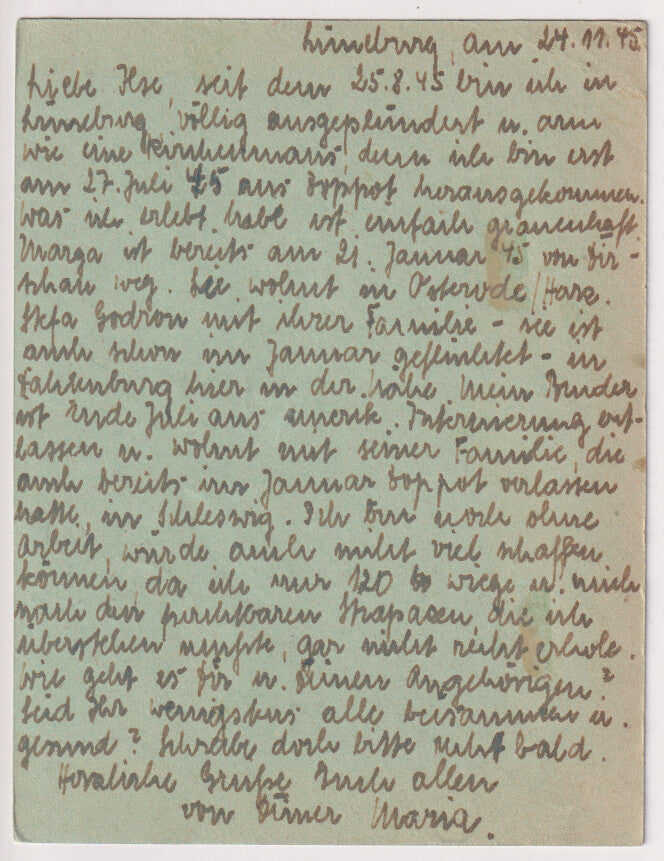 Lüneburg, am 24.11.45
Liebe Ilse, seit dem 25.8.45 bin ich in
Lüneburg, völlig ausgeplündert u. arm
wie eine Kirchenmaus, denn ich bin erst
am 27. Juli 45 aus Zoppot herausgekommen.
Was ich erlebt habe ist einfach grauenhaft.
Marga ist bereits am 21. Januar 45 von Dir-
schau weg. Sie wohnt in Osterode/Harz.
Stefa Godron mit ihrer Familie - sie ist
auch schon im Januar geflüchtet - in
Dahlenburg hier in der Nähe. Mein Bruder
ist Ende Juli aus amerik. Internierung ent-
lassen u. wohnt mit seiner Familie, die
auch bereits im Januar Zoppot verlassen
hatte, in Schleswig. Ich bin noch ohne
Arbeit, würde auch nicht viel schaffen
können, da ich nur 120 wiege u. mich
nach den furchtbaren Strapazen, die ich
überstehen mußte, gar nicht recht erhole.
Wie geht es Dir u. Deinen Angehörigen?
Seid Ihr wenigstens alle beisammen u.
gesund? Schreibe doch bitte recht bald.
Herzliche Grüße Euch allen
von Deiner Maria.